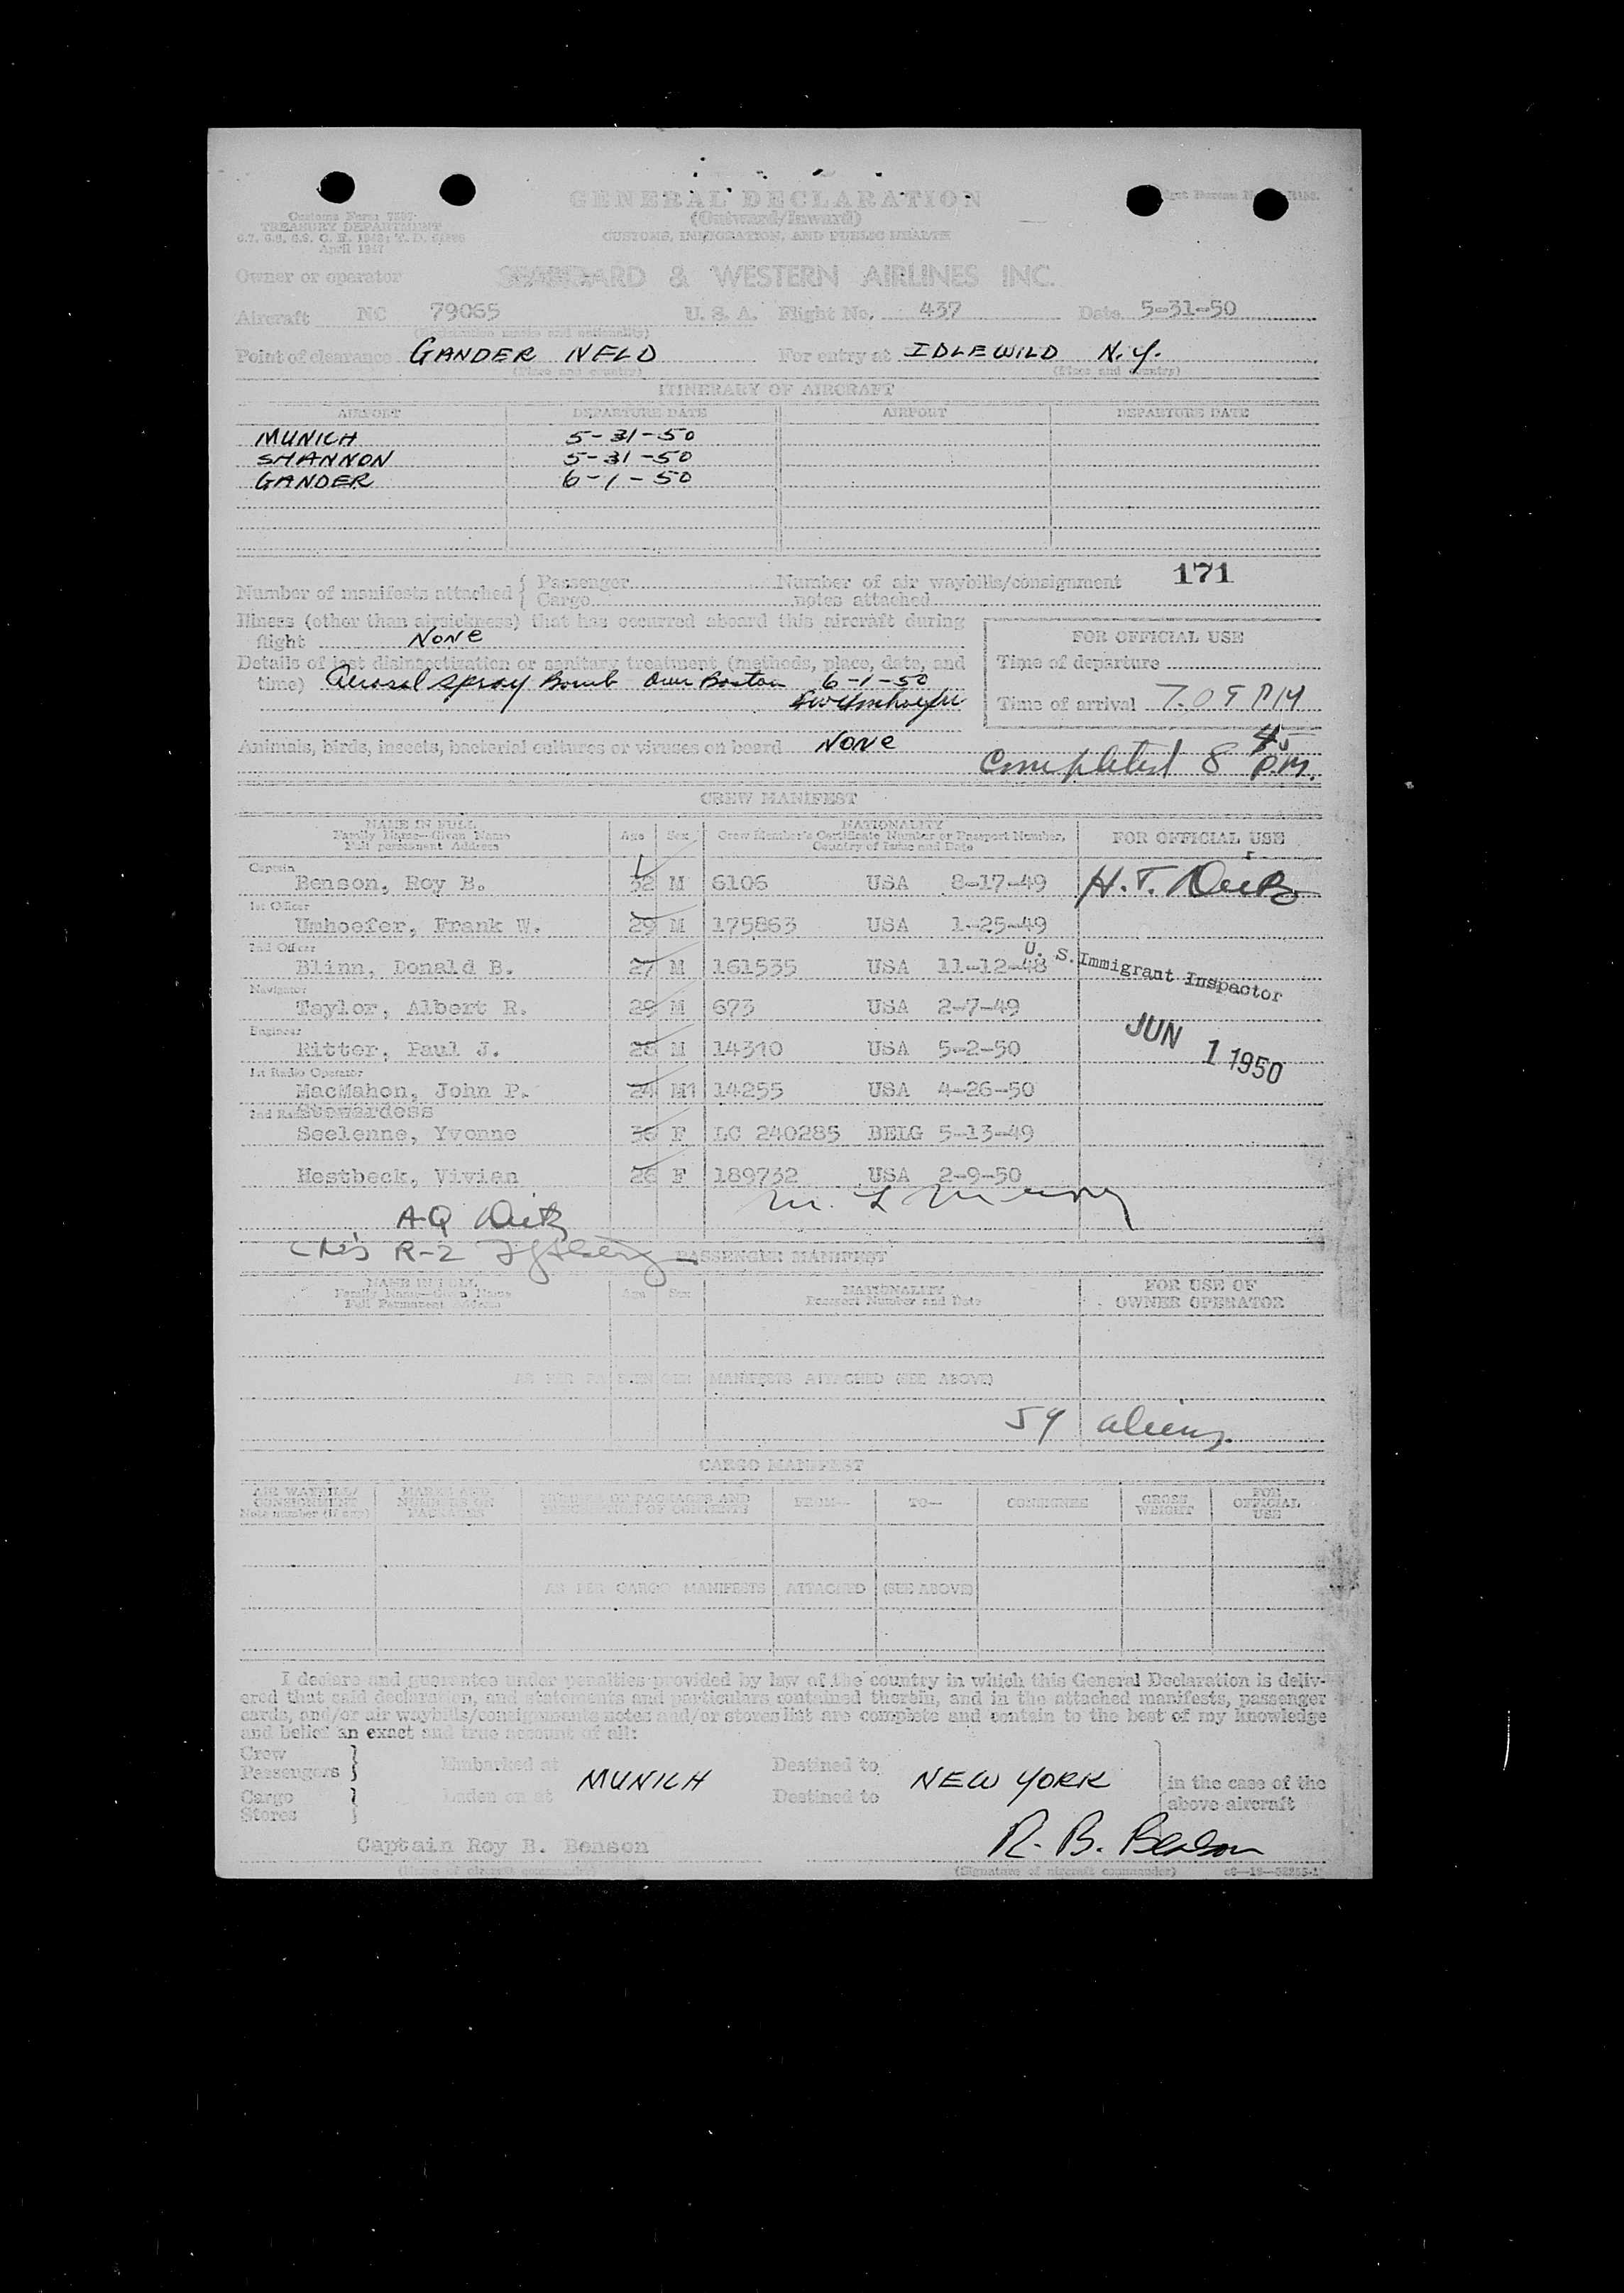 GENERAL DECLARATION
(Outward/Inward)
CUSTOMS, IMMIGRATION, AND PUBLIC HEALTH
TREASURY DEPARTMENT
April 1947
Owner or operator SEABOARD & WESTERN AIRLINES INC.
Aircraft NC 79065 U. S. A. Flight No. 437 Date 5-31-50
(Registration marks and nationality)
Point of clearance GANDER NFLD For entry at IDLEWILD N.Y.
(Place and country) (Place and country)
ITINERARY OF AIRCRAFT
AIRPORT DEPARTURE DATE AIRPORT DEPARTURE DATE
MUNICH 5-31-50
SHANNON 5-31-50
GANDER 6-1-50
171
Number of manifests attached { Passenger Number of air waybills/consignment
Cargo notes attached
Illness (other than airsickness) that has occurred aboard this aircraft during
flight None
FOR OFFICIAL USE
Details of last disinsectization or sanitary treatment (methods, place, date, and
time) Aerosol Spray Bomb Over Boston 6-1-50
Time of departure
Time of arrival 7.05 PM
Animals, birds, insects, bacterial cultures or viruses on board None
Completed 8 45 P.M.
CREW MANIFEST
NAME IN FULL
Family Name—Given Name
Full permanent Address
Age Sex
NATIONALITY
Crew Member's Certificate Number or Passport Number,
Country of Issue and Date
FOR OFFICIAL USE
Captain
Benson, Roy B. 32 M 6106 USA 8-17-49
1st Officer
Umhoefer, Frank W. 29 M 175863 USA 1-25-49
2nd Officer
Blinn, Donald B. 27 M 161535 USA 11-12-48
U. S. Immigrant Inspector
Navigator
Taylor, Albert R. 29 M 673 USA 2-7-49
Engineer
Ritter, Paul J. 28 M 14310 USA 5-2-50
JUN 1 1950
1st Radio Operator
MacMahon, John P. 24 M 14255 USA 4-26-50
Stewardess
Seelenne, Yvonne 36 F LC 240285 BELG 5-13-49
Hestbeck, Vivian 26 F 189732 USA 2-9-50
PASSENGER MANIFEST
NAME IN FULL
Family Name—Given Name
Full Permanent Address
Age Sex
NATIONALITY
Passport Number and Date
FOR USE OF
OWNER OPERATOR
AS PER PASSENGER MANIFESTS ATTACHED (SEE ABOVE)
59 aliens.
CARGO MANIFEST
AIR WAYBILL/
CONSIGNMENT
Note number (if any)
MARKS AND
NUMBERS ON
PACKAGES
NUMBER OF PACKAGES AND
DESCRIPTION OF CONTENTS
FROM—
TO—
CONSIGNEE
GROSS
WEIGHT
FOR
OFFICIAL
USE
AS PER CARGO MANIFESTS ATTACHED (SEE ABOVE)
I declare and guarantee under penalties provided by law of the country in which this General Declaration is deliv-
ered that said declaration, and statements and particulars contained therein, and in the attached manifests, passenger
cards, and/or air waybills/consignments notes and/or stores list are complete and contain to the best of my knowledge
and belief an exact and true account of all:
Crew
Passengers } Embarked at MUNICH Destined to NEW YORK in the case of the
Cargo
Stores } Laden on at Destined to above aircraft
Captain Roy B. Benson R. B. Benson
(Name of aircraft commander) (Signature of aircraft commander)